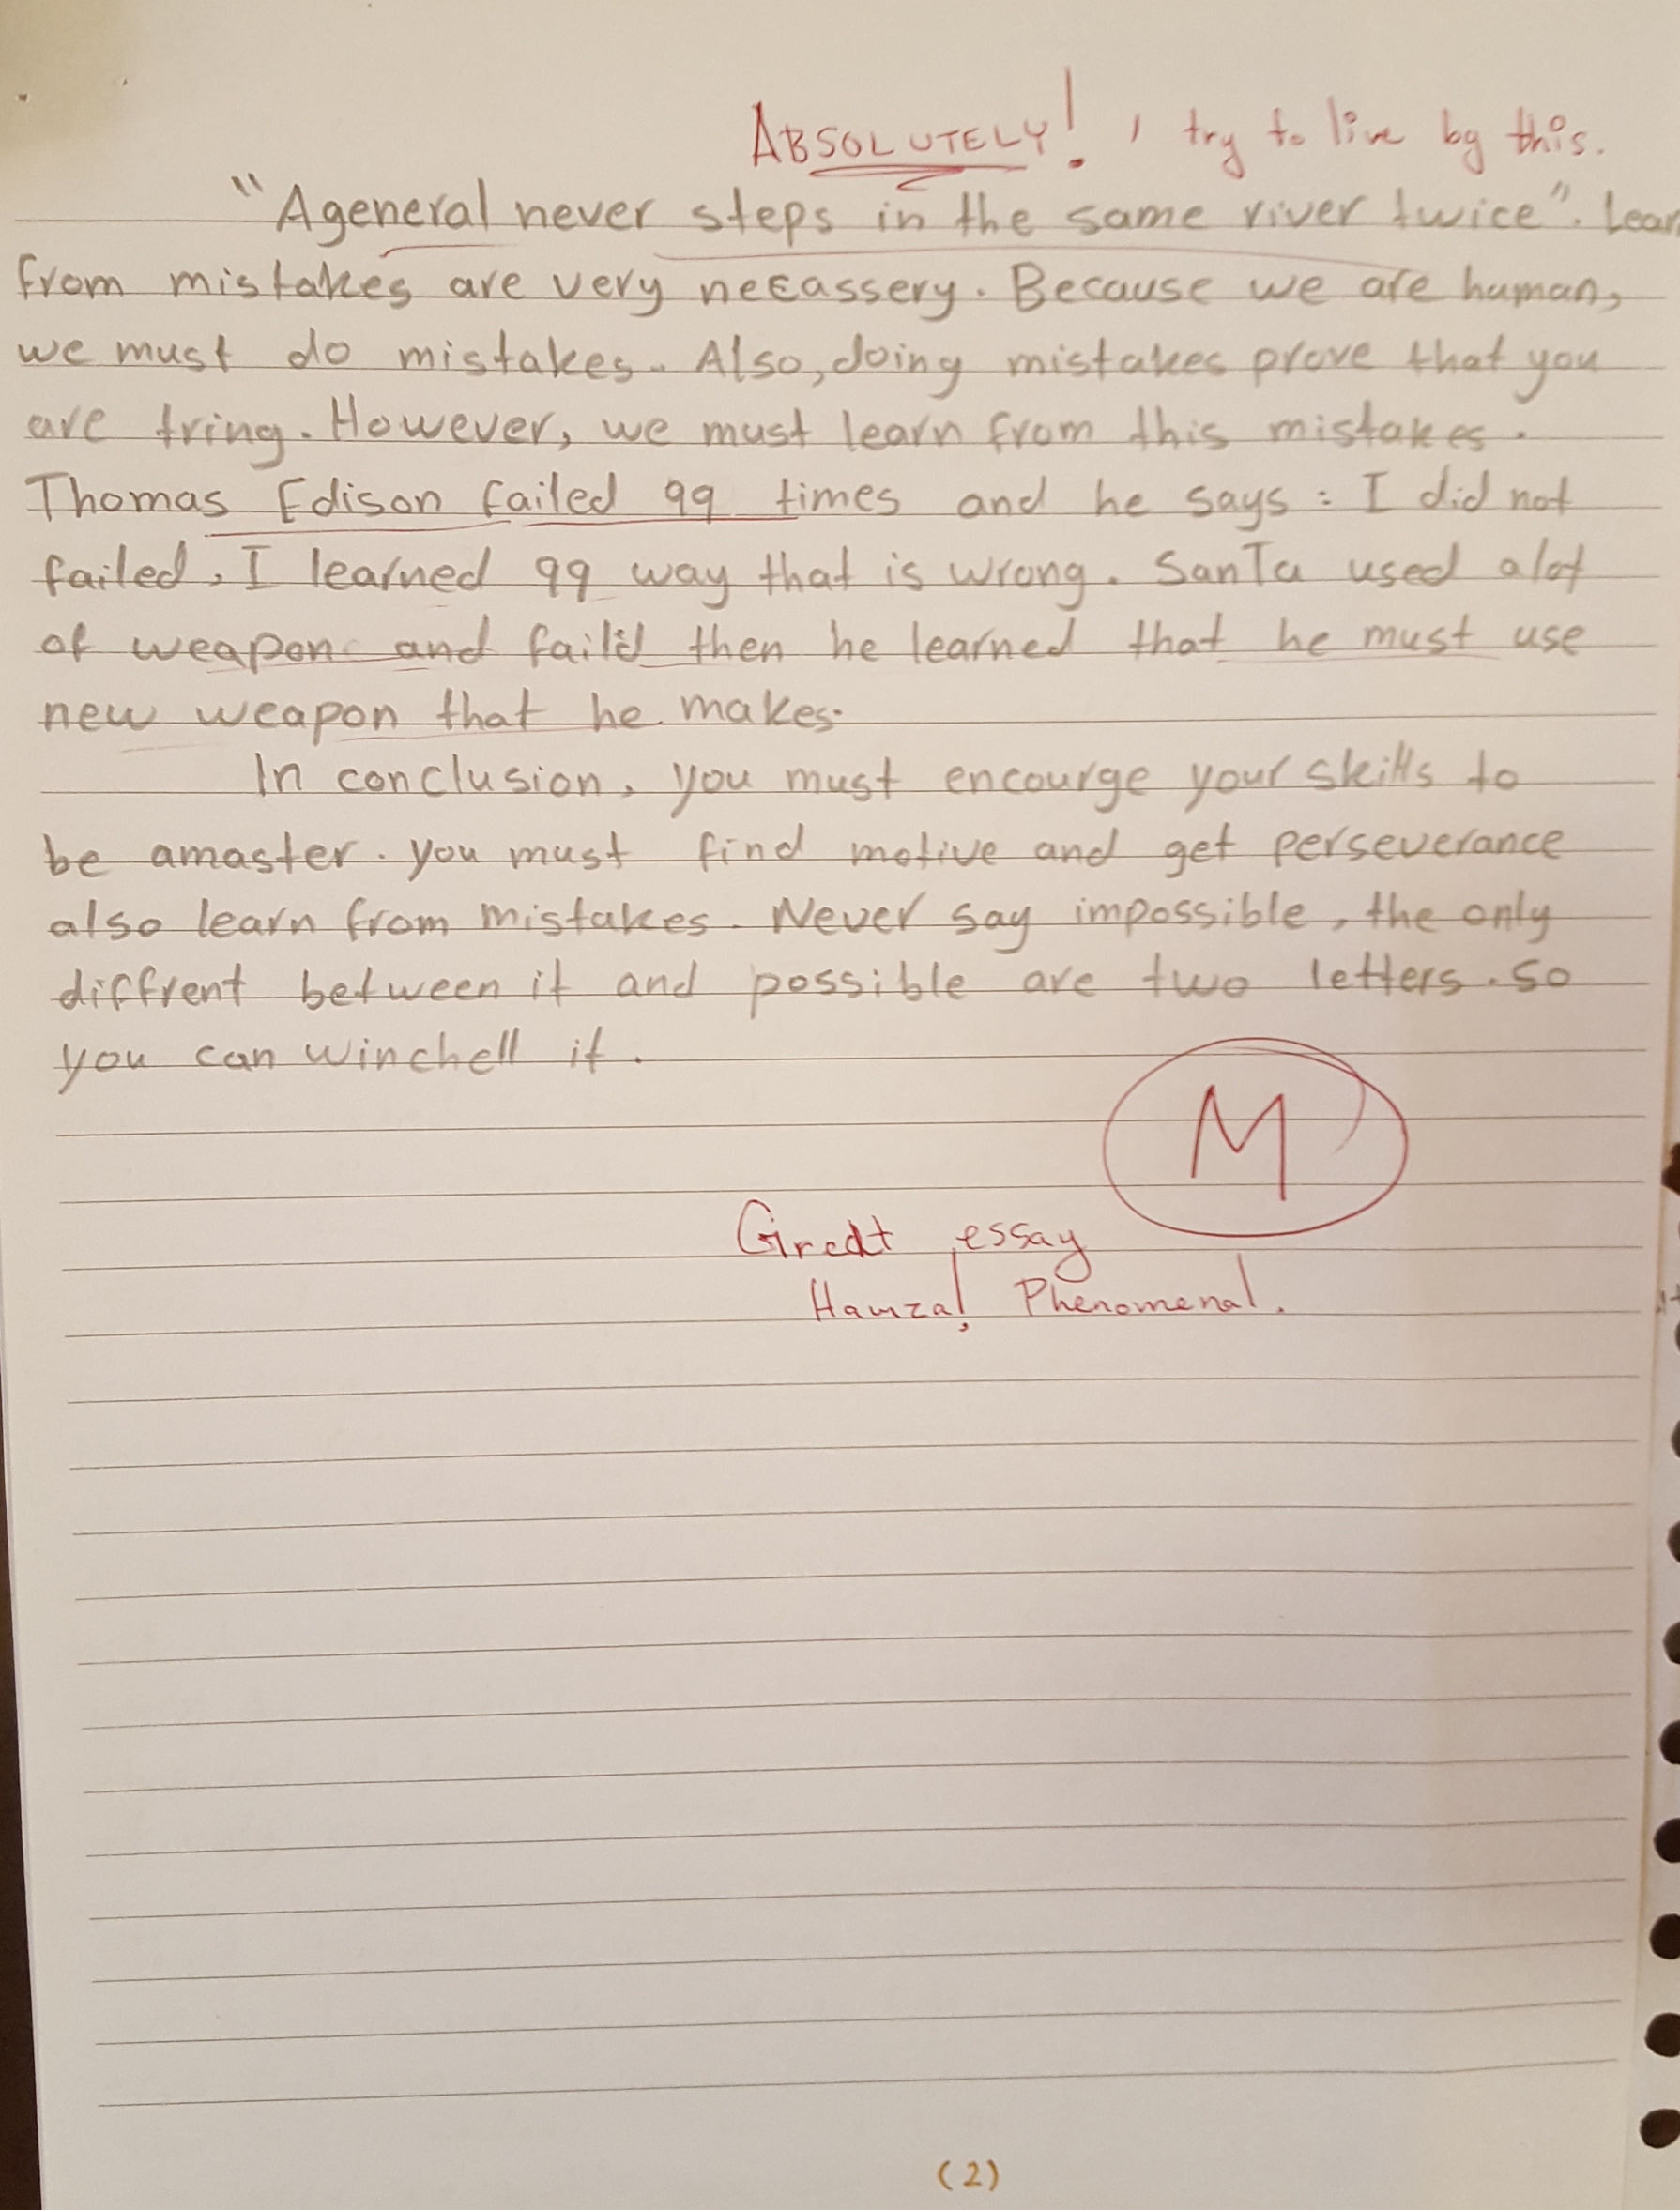 ABSOLUTELY! I try to live by this.
"Ageneral never steps in the same river twice". Lear
from mistakes are very necassery. Because we are human,
we must do mistakes. Also, doing mistakes prove that you
are tring. However, we must learn from this mistakes.
Thomas Edison failed 99 times and he says: I did not
failed, I learned 99 way that is wrong. Santa used alot
of weapon and faild then he learned that he must use
new weapon that he makes.
In conclusion, you must encourge your skills to
be amaster. you must find motive and get perseverance
also learn from mistakes. Never say impossible, the only
diffrent between it and possible are two letters. so
you can winchell it.
M
Great essay
Hamza! Phenomenal.
(2)